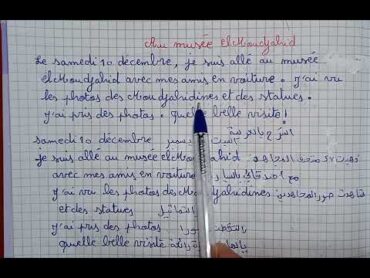 Au musée elMoudjahid
Le samedi 10 décembre, je suis allé au musée
elMoudjahid avec mes amis en voiture. J'ai vu
les photos des Moudjahidines et des statues.
J'ai pris des photos. Quelle belle visite!
Samedi 10 décembre السبت ديسمبر
Je suis allé au musée elMoudjahid ذهبت الى متحف المجاهد
avec mes amis en voiture مع أصدقائي
J'ai vu les photos des Moudjahidines شاهدت صور المجاهدين
et des statues التماثيل
J'ai pris des photos التقطت صورا
quelle belle visite